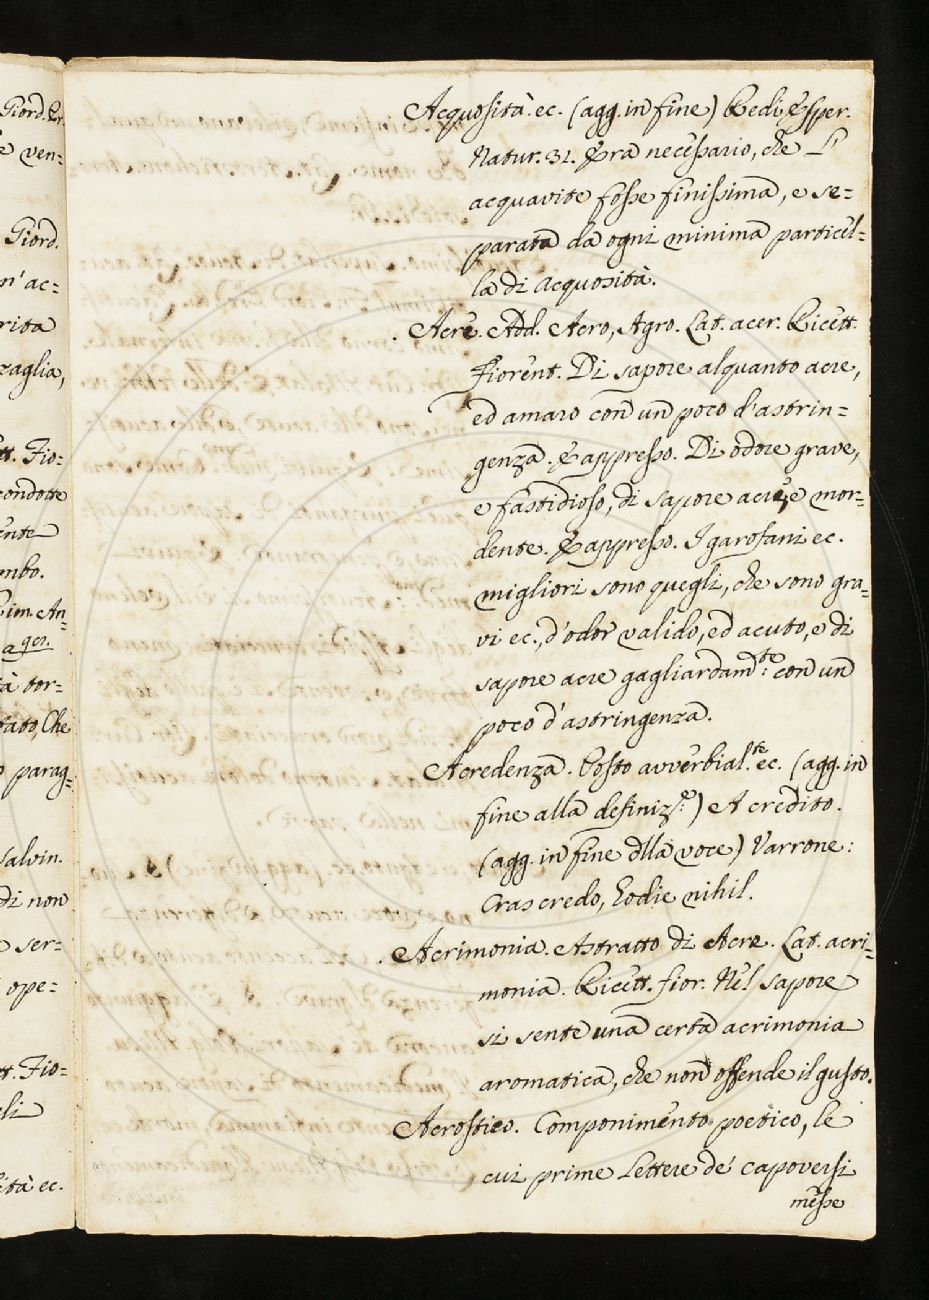 Giord. Pr.
e ven=
Giord.
n' ac=
rita
zaglia,
tt. Fio=
condotte
ente
mbo.
Rim. An=
a ger.
tà tor=
tato, Che
parag=
Salvin.
di non
ser=
ope=
tt. Fio=
eli
ità ec.
Acquosità. ec. (agg. in fine) Redi Esper.
Natur. 31. Era necessario, che L'
acquavite fosse finissima, e se=
parata da ogni minima particel=
la di acquosità.
Acre. Add. Acro, Agro. Lat. acer. Ricett.
Fiorent. Di sapore alquanto acre,
ed amaro con un poco d'astrin=
genza. E appresso. Di odore grave,
e fastidioso, di sapore acre, e mor=
dente. E appresso. I garofani ec.
migliori sono quegli, che sono gra=
vi ec., d'odor valido, ed acuto, e di
sapore acre gagliardam:te con un
poco d'astringenza.
Acredenza. Posto avverbial.te ec. (agg. in
fine alla definiz.e) A credito.
(agg. in fine dlla voce) Varrone:
Cras credo, hodie nihil.
Acrimonia. Astratto di Acre. Lat. acri=
monia. Ricett. fior. Nel sapore
si sente una certa acrimonia
aromatica, che non offende il gusto.
Acrostico. Componimento poetico, le
cui prime Lettere de' capoversi
messe